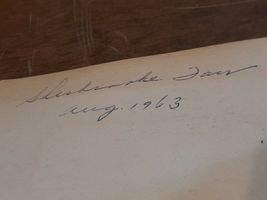 Sherbrooke Fair
Aug. 1963